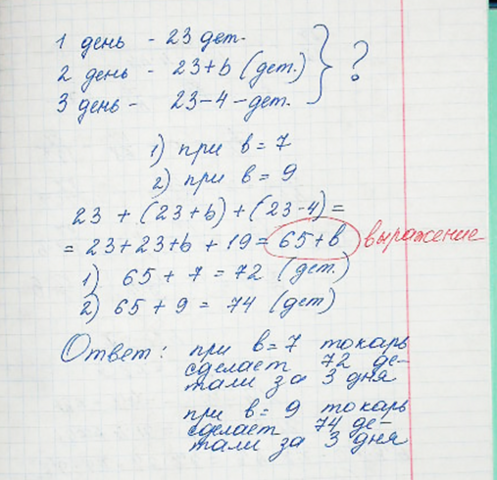 1 день - 23 дет.
2 день - 23+b (дет.) } ?
3 день - 23-4-дет.
1) при b=7
2) при b=9
23 + (23+b) + (23-4) =
= 23+23+b + 19 = 65+b выражение
1) 65 + 7 = 72 (дет.)
2) 65 + 9 = 74 (дет)
Ответ: при b=7 токарь
сделает 72 де-
тали за 3 дня
при b=9 токарь
сделает 74 де-
тали за 3 дня